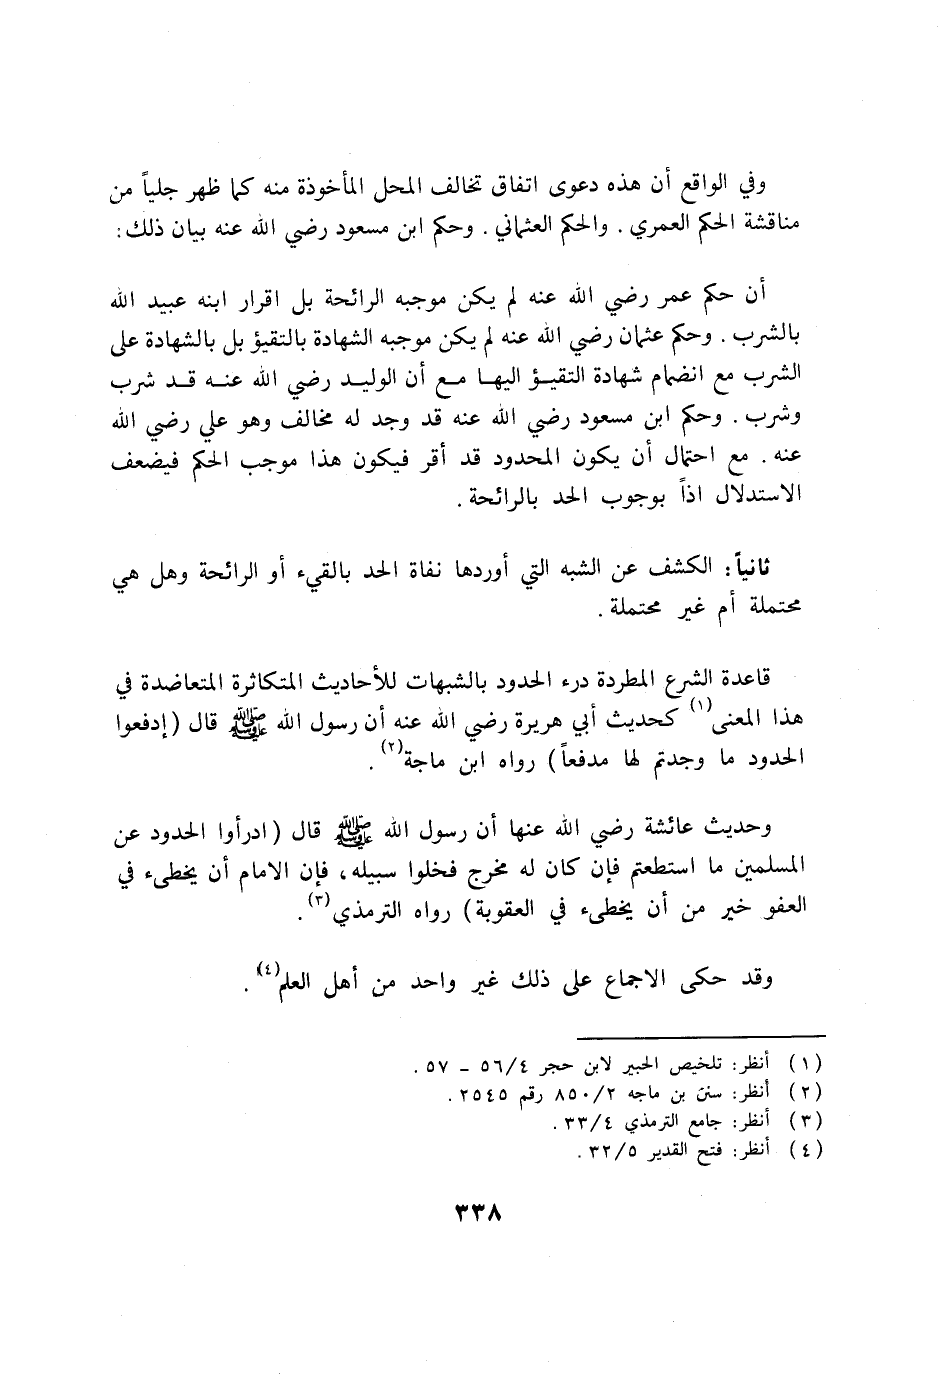 وفي الواقع أن هذه دعوى اتفاق تخالف المحل المأخوذة منه كما ظهر جلياً من
مناقشة الحكم العمري . والحكم العثماني . وحكم ابن مسعود رضي الله عنه بيان ذلك :
أن حكم عمر رضي الله عنه لم يكن موجبه الرائحة بل اقرار ابنه عبيد الله
بالشرب . وحكم عثمان رضي الله عنه لم يكن موجبه الشهادة بالتقيؤ بل بالشهادة على
الشرب مع انضمام شهادة التقيـؤ اليهـا مـع أن الوليـد رضي الله عنـه قـد شرب
وشرب . وحكم ابن مسعود رضي الله عنه قد وجد له مخالف وهو علي رضي الله
عنه . مع احتمال أن يكون المحدود قد أقر فيكون هذا موجب الحكم فيضعف
الاستدلال اذاً بوجوب الحد بالرائحة .
ثانياً : الكشف عن الشبه التي أوردها نفاة الحد بالقيء أو الرائحة وهل هي
محتملة أم غير محتملة .
قاعدة الشرع المطردة درء الحدود بالشبهات للأحاديث المتكاثرة المتعاضدة في
هذا المعنى(١) كحديث أبي هريرة رضي الله عنه أن رسول الله ﷺ قال ( إدفعوا
الحدود ما وجدتم لها مدفعاً ) رواه ابن ماجة(٢) .
وحديث عائشة رضي الله عنها أن رسول الله ﷺ قال ( ادرأوا الحدود عن
المسلمين ما استطعتم فإن كان له مخرج فخلوا سبيله ، فإن الامام أن يخطىء في
العفو خير من أن يخطىء في العقوبة ) رواه الترمذي(٣) .
وقد حكى الاجماع على ذلك غير واحد من أهل العلم(٤) .
(١) أنظر : تلخيص الحبير لابن حجر ٥٦/٤ - ٥٧ .
(٢) أنظر : سنن بن ماجه ٨٥٠/٢ رقم ٢٥٤٥ .
(٣) أنظر : جامع الترمذي ٣٣/٤ .
(٤) أنظر : فتح القدير ٣٢/٥ .
٣٣٨